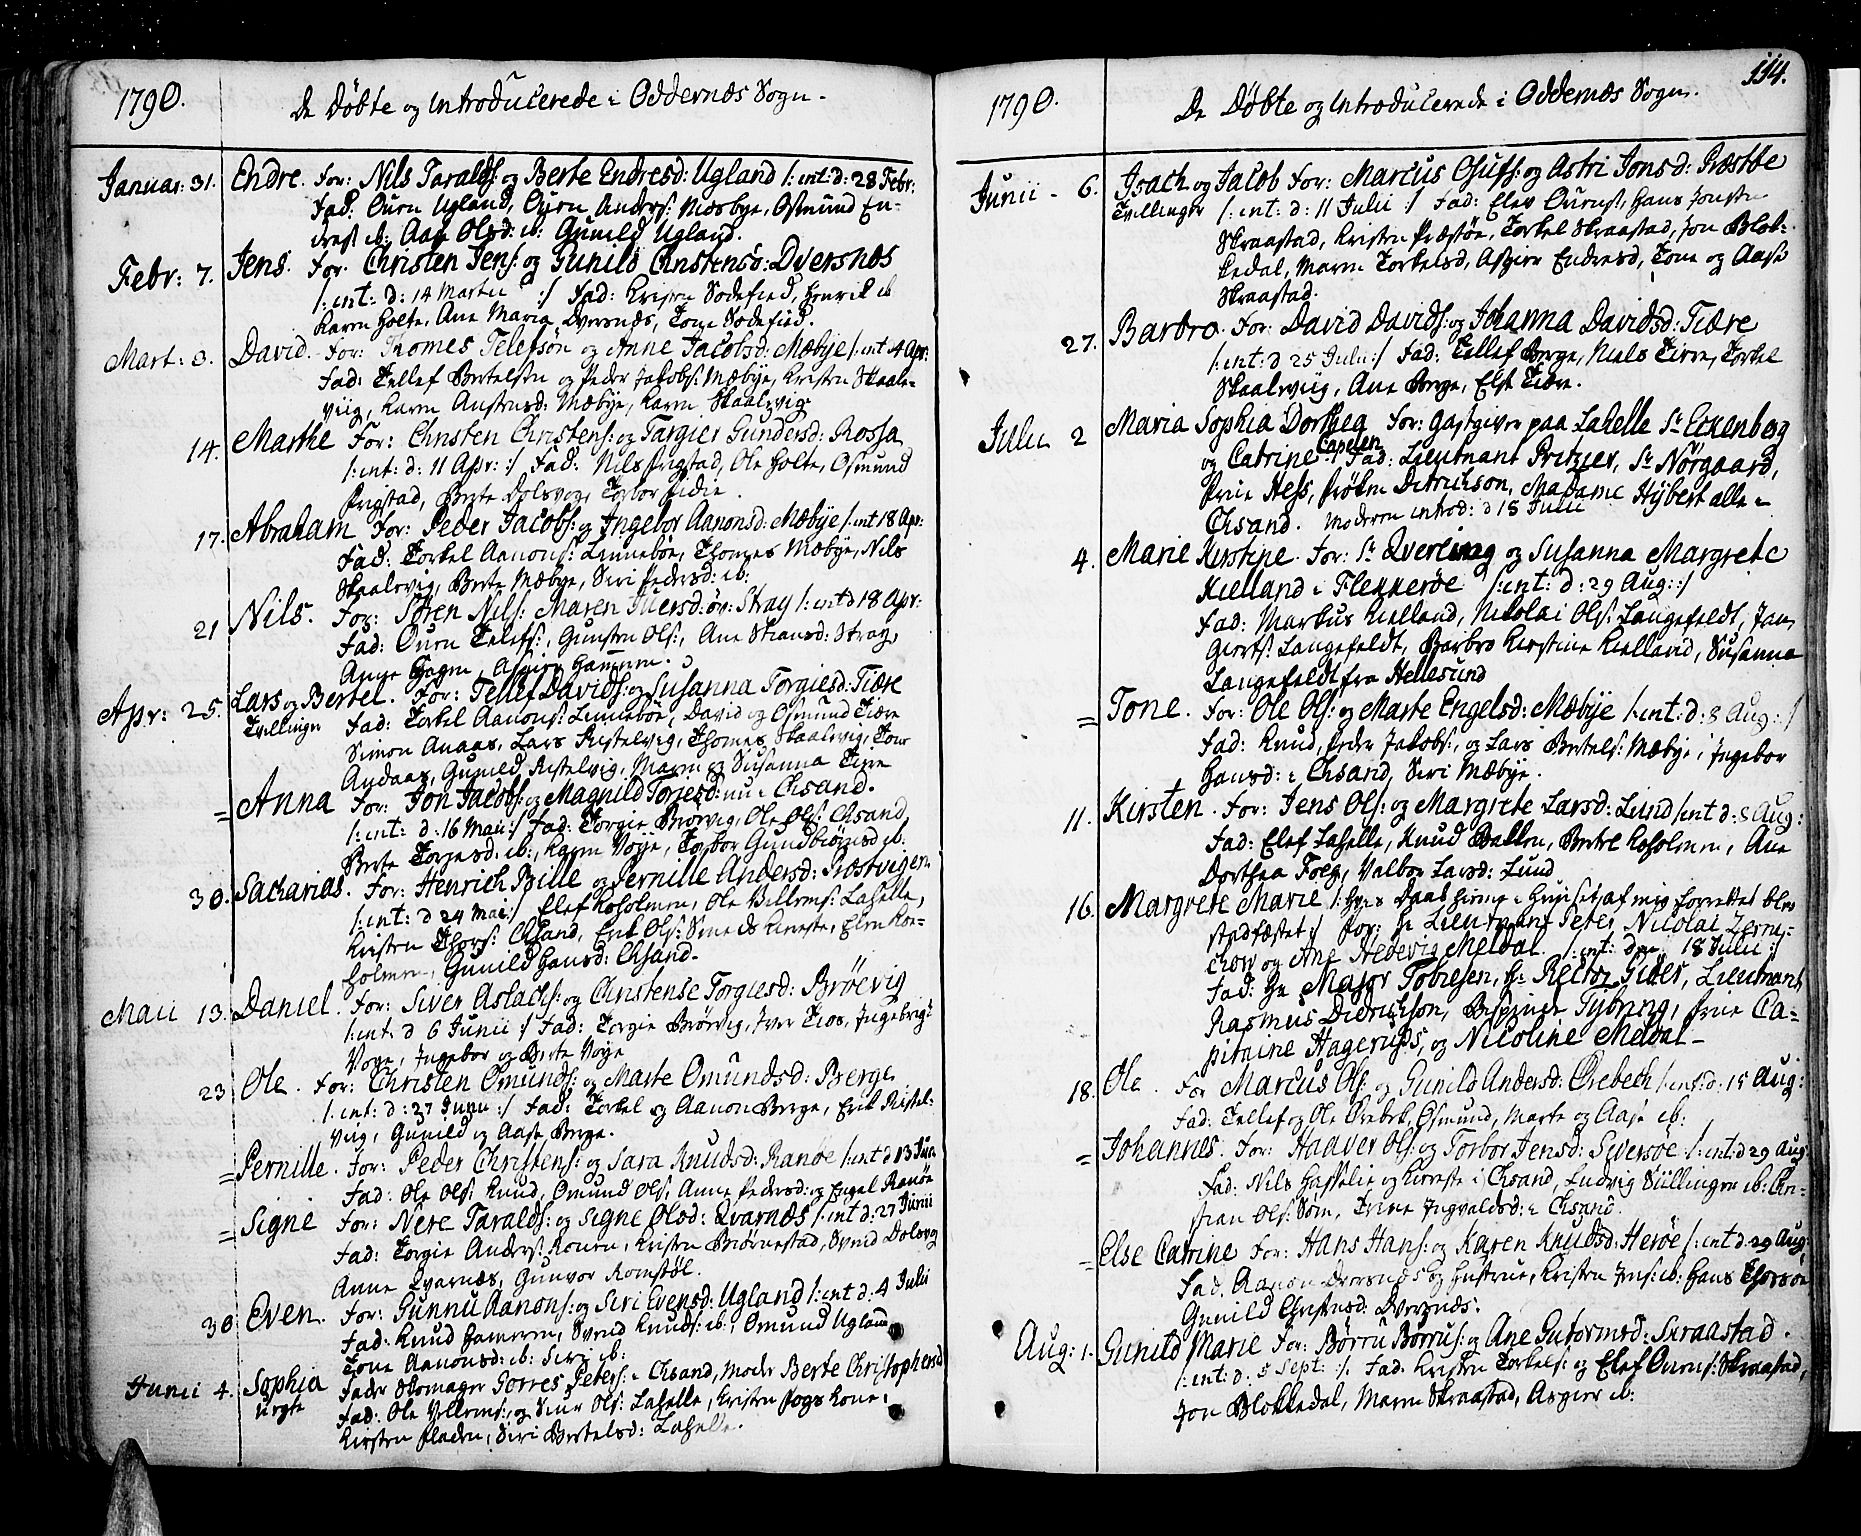 1790. De Døbte og Introducerede i Oddernæs Sogn.
Januar: 31. Endre. For: Nils Taralds: og Berte Endresd: Ugland /: int: d: 28 Febr:
Fad: Ougn Ugland, Ougn Anders: Mosbye, Osmund En-
dres: ib: Aan Olsd: ib: Gunild Ugland.
Febr: 7. Jens. For: Christen Jens: og Gunild Christensd: Dversnæs
/: int: d: 14 Martii :/ Fad: Kristen Sodefied, Henrik ib
Karen Holte, Ane Maria Dversnæs, Tone Sodefied.
Mart: 3. David. For: Thomes Telefsøn og Anne Jacobsd: Mæbye /: int 4 Apr:
Fad: Tellef Bertelsen og Peder Jakobs: Mæbye, Kristen Skaale-
viig, Karen Mæbye, Karen Skaalevig
14. Marthe For: Christen Christens: og Targier Gundersd: Rossa
/: int: d: 11 Apr: :/ Fad: Nils Prestad, Ole Holte, Osmund
Berte Dolsvog, Torbor
17. Abraham For: Peder Jacobs: og Ingebor Aanonsd: Mæbye /: int 18 Apr:
Fad: Torkel Aanons: Linnebøe, Thomes Mæbye, Nils
Skaalevig, Berte Mæbye, Siri Pedersd: ib:
21 Nils. For: Søren Nils: Maren Iuersd: øv: Stray /: int d 18 Apr:
Fad: Ougn Telefs:, Gunsten Ols:, Ane Stiansd: Stray,
Anne Asgier Hammen.
Apr: 25. Lars og Bertel. For: Tellef Davids: og Susanna Torgiesd: Tiære
Tvillinger Fad: Torkel Aanons: Linnebøe, David og Osmund Tiære
Simon Andaas, Lars Ristelvig, Thomes Skaalevig, Tone
Andaas, Gunild Ristelvig, Maren og Susanna Tiære
= Anna For: Jon Jacobs: og Magnild Torjesd: nu i Chsand.
/: int: d: 16 Maii :/ Fad: Torgie Brøvig, Ole Ols: Chsand
Berte Torjesd: ib:, Karen Voje, Torbor Gundbiørnsd ib:
30. Sacharias. For: Henrich Bille og Pernille Andersd: Præstvigen
/: int: d 24 Mai :/ Elef Koholmen, Ole Villems: Lahelle,
Kristen Thors: Chsand, Erik Ols: Kirste, Elen Koe-
holmen, Gunild Hansd: Chsand.
Maii 13. Daniel. For: Siver Aslachs: og Christense Torgiesd: Brøevig
/: int: d 6 Junii :/ Fad: Torgie Brøvig, Iver Tios, Ingebrigt
Voye, Ingebor og Berte Voye
23 Ole. For: Christen Omunds: og Marte Omundsd: Berge
/: int: d: 27 Junii :/ Fad: Torkel og Aanon Berge, Erik Ristel-
viig, Gunild og Aase Berge.
= Pernille. For: Peder Christens: og Sara Knudsd: Ranøe /: int d 13 Jun:
Fad: Ole Ols: Knud, Omund Ols, Anne Pedersd: og Engel Ranøe
= Signe For: Nere Taralds: og Signe Olsd: Qvarnæs /: int d: 27 Junii
Fad: Torgie Anders: Kristen Biørnestad, Svend Dolsvog
Anne Qvarnæs, Gunvor Romstøl.
30 Even. For: Gunnu Aanons: og Siri Evensd: Ugland /: int d: 4 Julii
Fad: Knud Hamren, Svend Knuds: ib:, Omund Ugland
Tone Aanonsd: ib: Siri ib:
Junii 4. Sophia Fader Skomager Torres Peters: i Chsand, Moder Berte Christophersd
uegte Fad: Ole Vellems: og Siur Ols: Lahelle, Kristen Fogs Kone,
Kirsten Pladen, Siri Bertelsd: Lahelle.
114.
1790. De Døbte og Introducerede i Oddernæs Sogn.
Junii - 6. Isach og Jacob For: Marcus Osufs: og Astri Jonsd: Præstbe
Tvillinger /: int: d: 11 Julii :/ Fad: Elev Ourns:, Hans Jensen
Skraastad, Kristen Præstøe, Torkel Skraastad, Jon Blok-
kedal, Maren Torkelsd, Asgier Endresd, Tone og Aase
Skraastad.
27. Barbro. For: David Davids: og Johanna Davidsd: Tiære
/: int: d 25 Julii :/ Fad: Tellef Berge, Niels Tiære, Torkel
Skaalsviig, Ane Berge, Else Tiære.
Julii 2 Maria Sophia Dorthea For: Gastgiver paa Lahelle Sr Eckenberg
og Catrine Capelen :/ Fad: Lieutnant Pritzier, Sr Nørgaard,
Frue Hess, Frøken Ditrichson, Madame Hybert alle i
Chsand. Moderen introd: d 18 Julii
4. Marie Kirstine. For: Sr Qverling og Susanna Margrete
Kielland i Flekkerøe /: int: d: 29 Aug: :/
Fad: Markus Kielland, Nikolai Ols: Langefeldt, Jan
Giorts: Langefeldt, Barbro Kirstine Kielland, Susanna
Langefeldt fra Hellesund
= Tone. For: Ole Ols: og Marte Engelsd: Mæbye /: int: d: 8 Aug: :/
Fad: Knud, Peder Jakobs:, og Lars Bertels: Mæbye, Ingebor
Hansd: i Chsand, Siri Mæbye.
11. Kirsten. For: Jens Ols: og Margrete Larsd: Lund /: int d: 8 Aug:
Fad: Elef Lahelle, Knud Balken, Berte Koholmen, Ane
Dorthea Foeg, Valbor Larsd: Lund
16. Margrete Marie /: hvis Daab hieme i Huuset af mig forrettet blev
stadfæstet :/ For: Hr Lieutnant Peter Nicolai Zerni-
chow og Ane Hedevig Meldal. /: int: den 18 Julii :/
Fad: Hr Major Tobiesen, Hr Rector Tider, Lieutnant
Rasmus Didrichson, Bispinde Tybring, Frue Ca-
pitaine Hagerups, og Nicoline Meldal
18. Ole. For Marcus Ols: og Gunild Andersd: Ørebech /: int: d: 15 Aug:
Fad: Tellef og Ole Ørebek, Osmund, Marte og Aase ib:
= Johannes. For: Haaver Ols: og Torbor Jensd: Siversøe /: int: d 29 Aug:
Fad: Nils Hasselie og Kirste i Chsand, Ludvig Süllinger ib: Chri-
stian Ols: Søm, Trine Ingvaldsd: i Chsand.
= Else Catrine For: Hans Hans: og Karen Knudsd: Herøe /: int d 29 Aug:
Fad. Aanon Dversnæs og Hustrue, Kristen Jens: ib: Hans Thorsøe
Gunild Christensd: Dversnæs.
Aug: 1. Gunild Marie For: Børru Børrus: og Ane Gutormsd: Skraastad.
/: int: d: 5 Sept: :/. Fad: Kristen Torkels: og Elef Ouens: Skraastad,
Jon Blokkedal, Maren Skraastad, Asgier ib: